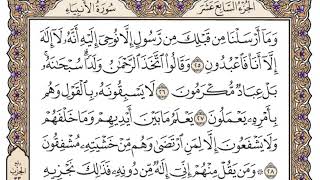 الجزء السابع عشر
سورة الأنبياء
وَمَآ أَرْسَلْنَا مِن قَبْلِكَ مِن رَّسُولٍ إِلَّا نُوحِىٓ إِلَيْهِ أَنَّهُۥ لَآ إِلَٰهَ
إِلَّآ أَنَا۠ فَٱعْبُدُونِ ٢٥ وَقَالُوا۟ ٱتَّخَذَ ٱلرَّحْمَٰنُ وَلَدًا ۗ سُبْحَٰنَهُۥ ۚ
بَلْ عِبَادٌ مُّكْرَمُونَ ٢٦ لَا يَسْبِقُونَهُۥ بِٱلْقَوْلِ وَهُم
بِأَمْرِهِۦ يَعْمَلُونَ ٢٧ يَعْلَمُ مَا بَيْنَ أَيْدِيهِمْ وَمَا خَلْفَهُمْ
وَلَا يَشْفَعُونَ إِلَّا لِمَنِ ٱرْتَضَىٰ وَهُم مِّنْ خَشْيَتِهِۦ مُشْفِقُونَ
٢٨ وَمَن يَقُلْ مِنْهُمْ إِنِّىٓ إِلَٰهٌ مِّن دُونِهِۦ فَذَٰلِكَ نَجْزِيهِ